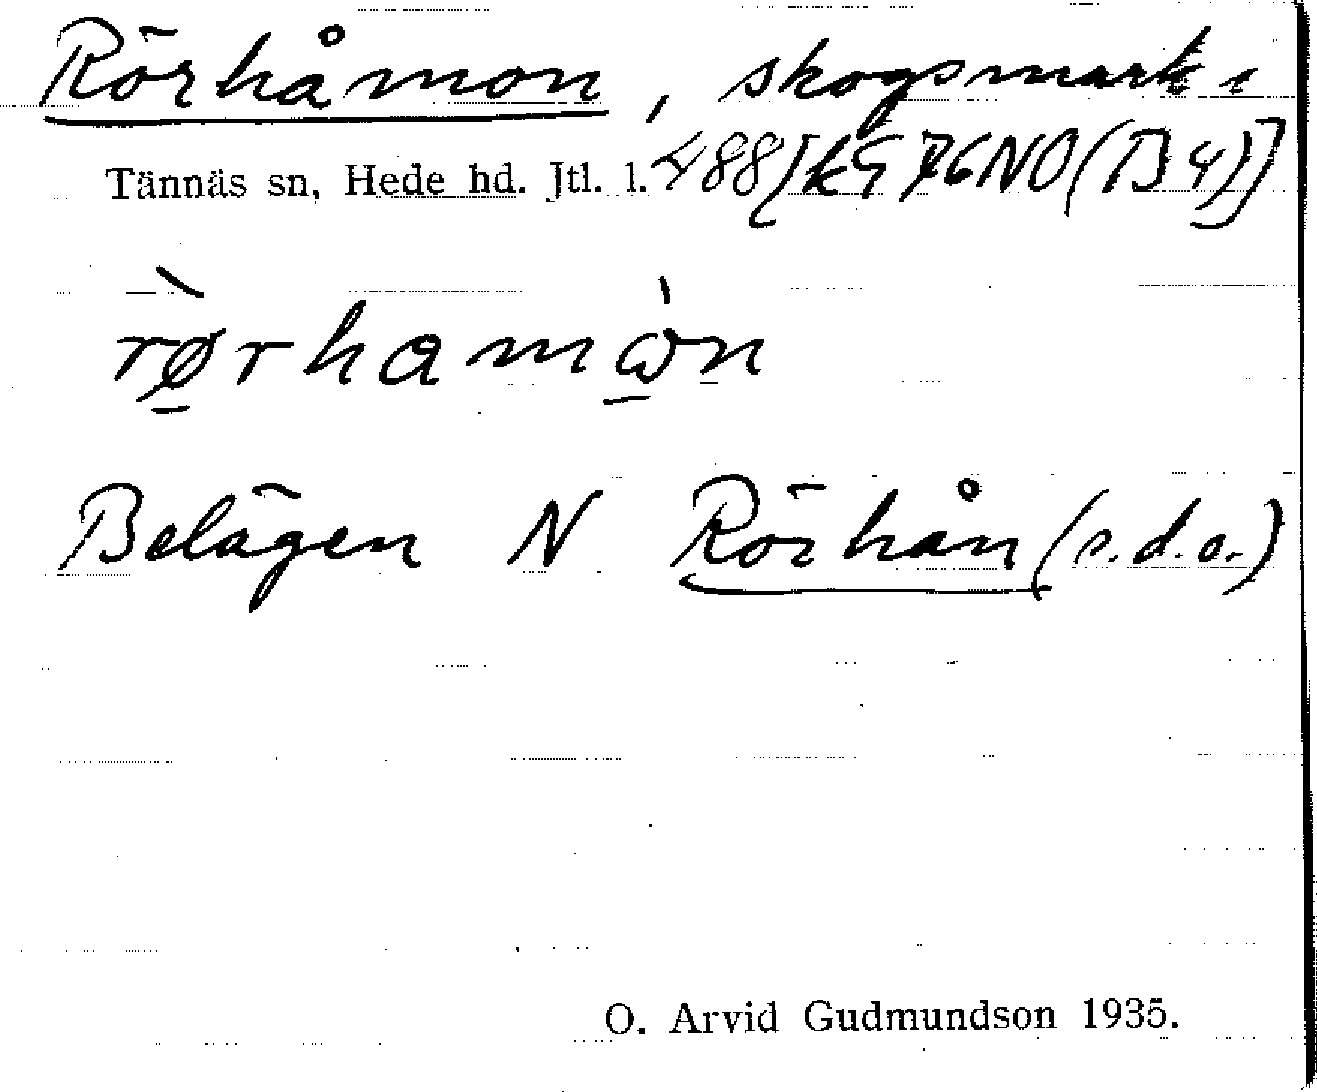 Rörhåmon, skogsmark i
Tännäs sn, Hede hd. Jtl. l. 488 [k9 76NO(B4)]
rø̱̀rhamɷ̱̀n
Belägen N Rörhån (s.d.o.)
O. Arvid Gudmundson 1935.